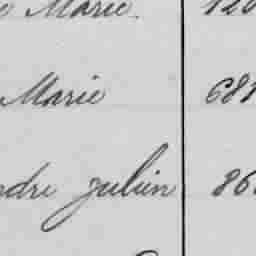 Marie. 120
Marie 681
ndre Julien 86